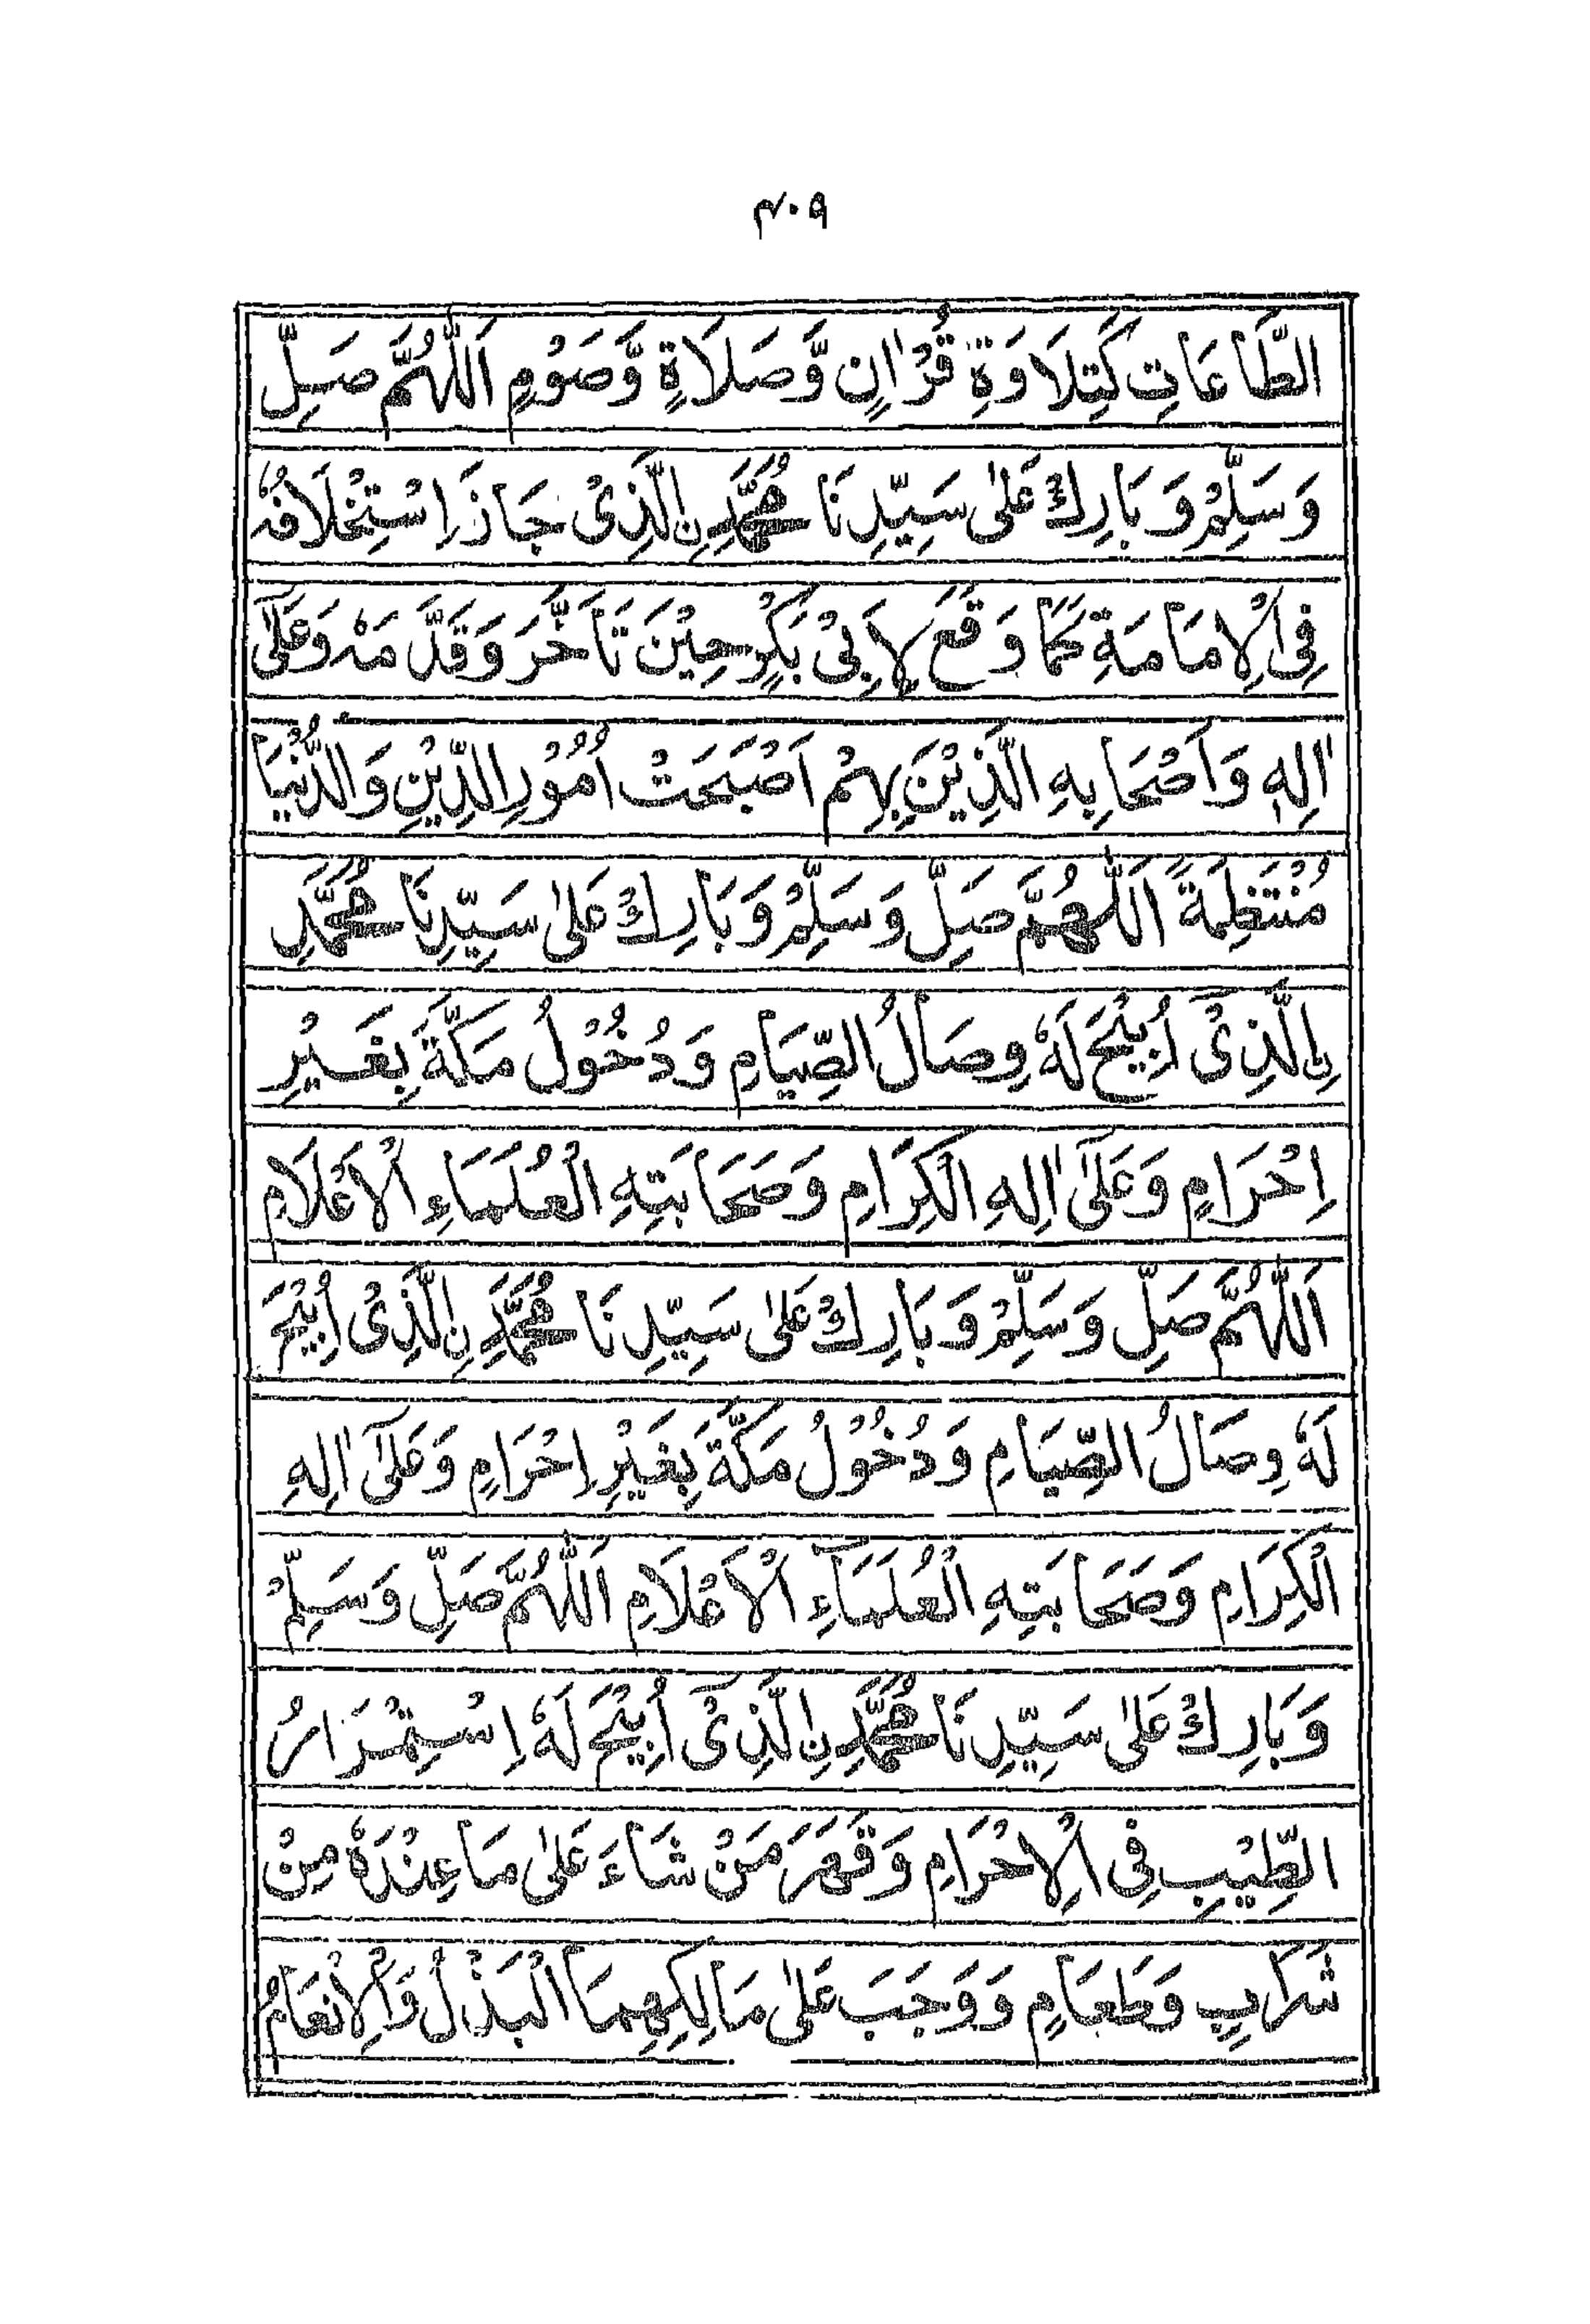 ۲۰۹
الطَّاعَاتِ كَتِلَاوَةِ قُرْاٰنٍ وَّصَلَاةٍ وَّصَوْمٍ اَللّٰهُمَّ صَلِّ
وَسَلِّمْ وَبَارِكْ عَلٰى سَيِّدِنَا مُحَمَّدِ نِ الَّذِىْ جَازَ اِسْتِخْلَافُهٗ
فِى الْاِمَامَةِ كَمَا وَقَعَ لِاَبِىْ بَكْرٍ حِيْنَ تَاَخَّرَ وَقَدَّمَهٗ وَعَلٰٓى
اٰلِهٖ وَاَصْحَابِهِ الَّذِيْنَ بِهِمْ اَصْبَحَتْ اُمُوْرِ الدِّيْنِ وَالدُّنْيَا
مُنْتَظِمَةً اَللّٰهُمَّ صَلِّ وَسَلِّمْ وَبَارِكْ عَلٰى سَيِّدِنَا مُحَمَّدِ
نِ الَّذِىْٓ اُبِيْحَ لَهٗ وِصَالُ الصِّيَامِ وَدُخُوْلُ مَكَّةَ بِغَيْرِ
اِحْرَامٍ وَعَلٰٓى اٰلِهِ الْكِرَامِ وَصَحَابَتِهِ الْعُلَمَاءِ الْاَعْلَامِ
اَللّٰهُمَّ صَلِّ وَسَلِّمْ وَبَارِكْ عَلٰى سَيِّدِنَا مُحَمَّدِ نِ الَّذِىْ اُبِيْحَ
لَهٗ وِصَالُ الصِّيَامِ وَدُخُوْلُ مَكَّةَ بِغَيْرِ اِحْرَامٍ وَعَلٰٓى اٰلِهِ
الْكِرَامِ وَصَحَابَتِهِ الْعُلَمَآءِ الْاَعْلَامِ اَللّٰهُمَّ صَلِّ وَسَلِّمْ
وَبَارِكْ عَلٰى سَيِّدِنَا مُحَمَّدِ نِ الَّذِىْٓ اُبِيْحَ لَهٗ اِسْتِمْرَارُ
الطِّيْبِ فِى الْاِحْرَامِ وَقَهَرَ مَنْ شَاءَ عَلٰى مَا عِنْدَهٗ مِنْ
شَرَابٍ وَطَعَامٍ وَوَجَبَ عَلٰى مَالِكِهِمَا الْبَذْلُ وَالْاِنْعَامُ